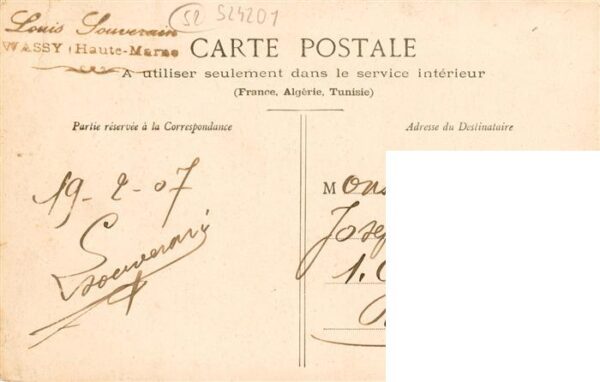 Louis Souverain
WASSY (Haute-Marne
52 524201
CARTE POSTALE
A utiliser seulement dans le service intérieur
(France, Algérie, Tunisie)
Partie réservée à la Correspondance
Adresse du Destinataire
19-2-07
Souverain
Mons
Josep
1.